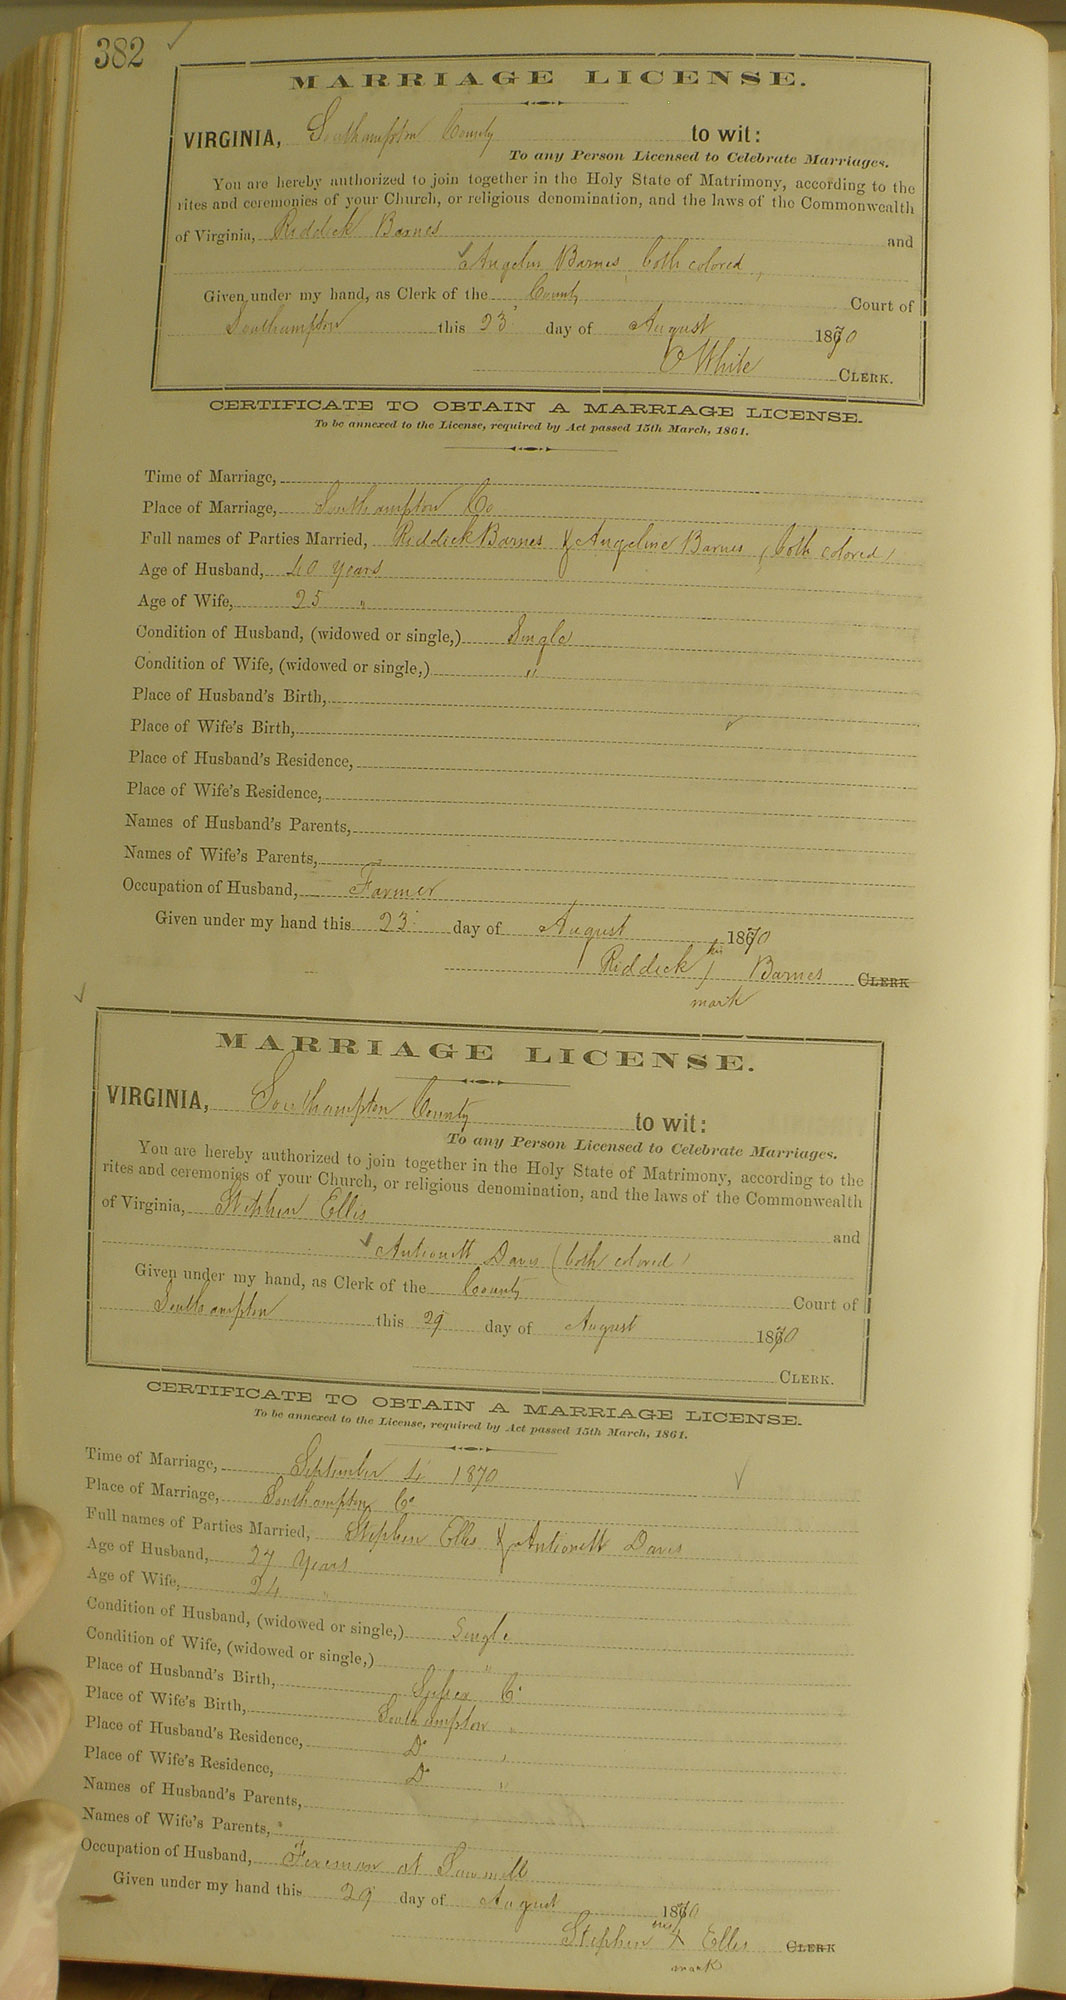 382
MARRIAGE LICENSE.
VIRGINIA, Southampton County to wit:
To any Person Licensed to Celebrate Marriages.
You are hereby authorized to join together in the Holy State of Matrimony, according to the
rites and ceremonies of your Church, or religious denomination, and the laws of the Commonwealth
of Virginia, Riddick Barnes and
Angelin Barnes, both colored,
Given under my hand, as Clerk of the County Court of
Southampton this 23 day of August 1870
White CLERK.
CERTIFICATE TO OBTAIN A MARRIAGE LICENSE.
To be annexed to the License, required by Act passed 15th March, 1861.
Time of Marriage,
Place of Marriage, Southampton Co
Full names of Parties Married, Riddick Barnes & Angeline Barnes (both colored)
Age of Husband, 40 years
Age of Wife, 25 "
Condition of Husband, (widowed or single,) Single
Condition of Wife, (widowed or single,) "
Place of Husband's Birth,
Place of Wife's Birth,
Place of Husband's Residence,
Place of Wife's Residence,
Names of Husband's Parents,
Names of Wife's Parents,
Occupation of Husband, Farmer
Given under my hand this 23 day of August 1870
his
Riddick Barnes CLERK
mark
MARRIAGE LICENSE.
VIRGINIA, Southampton County to wit:
To any Person Licensed to Celebrate Marriages.
You are hereby authorized to join together in the Holy State of Matrimony, according to the
rites and ceremonies of your Church, or religious denomination, and the laws of the Commonwealth
of Virginia, Stephen Ellis and
Antionett Davis (both colored)
Given under my hand, as Clerk of the County Court of
Southampton this 29 day of August 1870
CLERK.
CERTIFICATE TO OBTAIN A MARRIAGE LICENSE.
To be annexed to the License, required by Act passed 15th March, 1861.
Time of Marriage, September 4 1870
Place of Marriage, Southampton Co
Full names of Parties Married, Stephen Ellis & Antionett Davis
Age of Husband, 27 Years
Age of Wife, 24 "
Condition of Husband, (widowed or single,) Single
Condition of Wife, (widowed or single,) "
Place of Husband's Birth, Sussex Co
Place of Wife's Birth, Southampton "
Place of Husband's Residence, Do "
Place of Wife's Residence, Do "
Names of Husband's Parents,
Names of Wife's Parents,
Occupation of Husband, Fireman at Sawmill
Given under my hand this 29 day of August 1870
Stephen X Ellis CLERK
mark